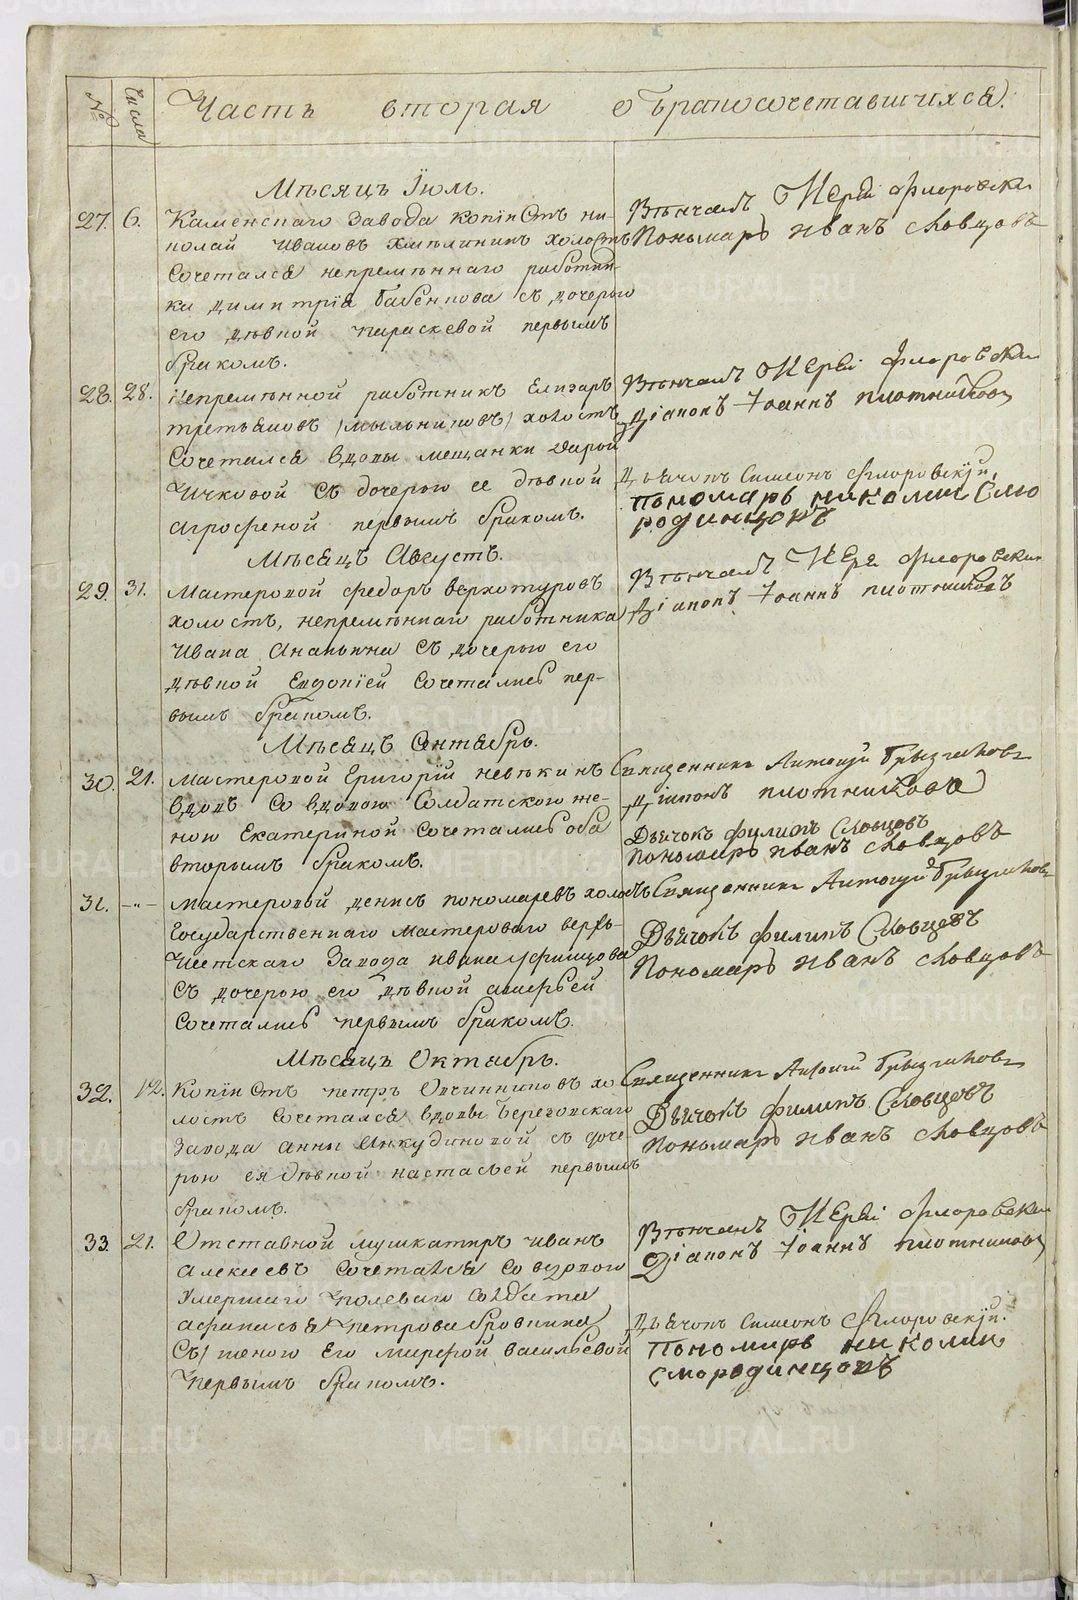 № Числа Часть вторая о бракосочетавшихся.
Мѣсяцъ Іюль.
27. 6. Каменскаго завода копіистъ ни-
колай Ивановъ холостъ
сочетался непремѣннаго работни-
ка димитрія бабенкова съ дочерью
его дѣвкой параскевой первымъ
бракомъ.
Вѣнчалъ Іерей Флоровски
Пономарь Иванъ Словцовъ
28. 28. Непремѣнной работникъ Елизаръ
третьяковъ (мыльниковъ) холостъ
сочетался вдовы мещанки дарьи
Ичковой съ дочерью ее дѣвкой
Агрофеной первымъ бракомъ.
Вѣнчалъ Іерей Флоровски
Діаконъ Іоаннъ плотниковъ
Дьячокъ Симеонъ Флоровскій
пономарь николаи Смо
родинцовъ
Мѣсяцъ Августъ.
29. 31. Мастеровой федоръ верхотуровъ
холостъ, непремѣннаго работника
Ивана Ананьина съ дочерью его
дѣвкой Евдокіей сочетались пер-
вымъ бракомъ.
Вѣнчалъ Іерей Флоровски
Діаконъ Іоаннъ плотниковъ
Мѣсяцъ Сентябрь.
30. 21. Мастеровой Григорій невѣкинъ
вдовъ со вдовою Солдатскою же-
ною Екатериной сочетались оба
вторымъ бракомъ.
Священникъ Антоній
Діаконъ плотниковъ
Дьячокъ филипъ Словцовъ
пономарь иванъ Словцовъ
31. -"- Мастеровой денисъ пономаревъ холостъ
Государственнаго мастероваго верхъ-
Исетскаго завода ивана уфинцова
съ дочерью его дѣвкой
сочетались первымъ бракомъ.
Священникъ Антоній
Дьячокъ филипъ Словцовъ
Пономарь Иванъ Словцовъ
Мѣсяцъ Октябрь.
32. 12. Копіистъ петръ Овчинниковъ хо
лостъ сочетался вдовы березовскаго
завода анны Анкудиновой съ доче
рью ея дѣвкой настасьей первымъ
бракомъ.
Священникъ Антоній
Дьячокъ филипъ Словцовъ
Пономарь Иванъ Словцовъ
33. 21. Отставной мушкатиръ иванъ
Алексеевъ сочетался со вдовою
умершаго полеваго солдата
афанасья петрова бровкина
съ женою его марфой васильевой
первымъ бракомъ.
Вѣнчалъ Іерей Флоровски
Діаконъ Іоаннъ плотниковъ
Дьячокъ Симеонъ Флоровскій.
пономарь николаи
Смородинцовъ
METRIKI.GASO-URAL.RU